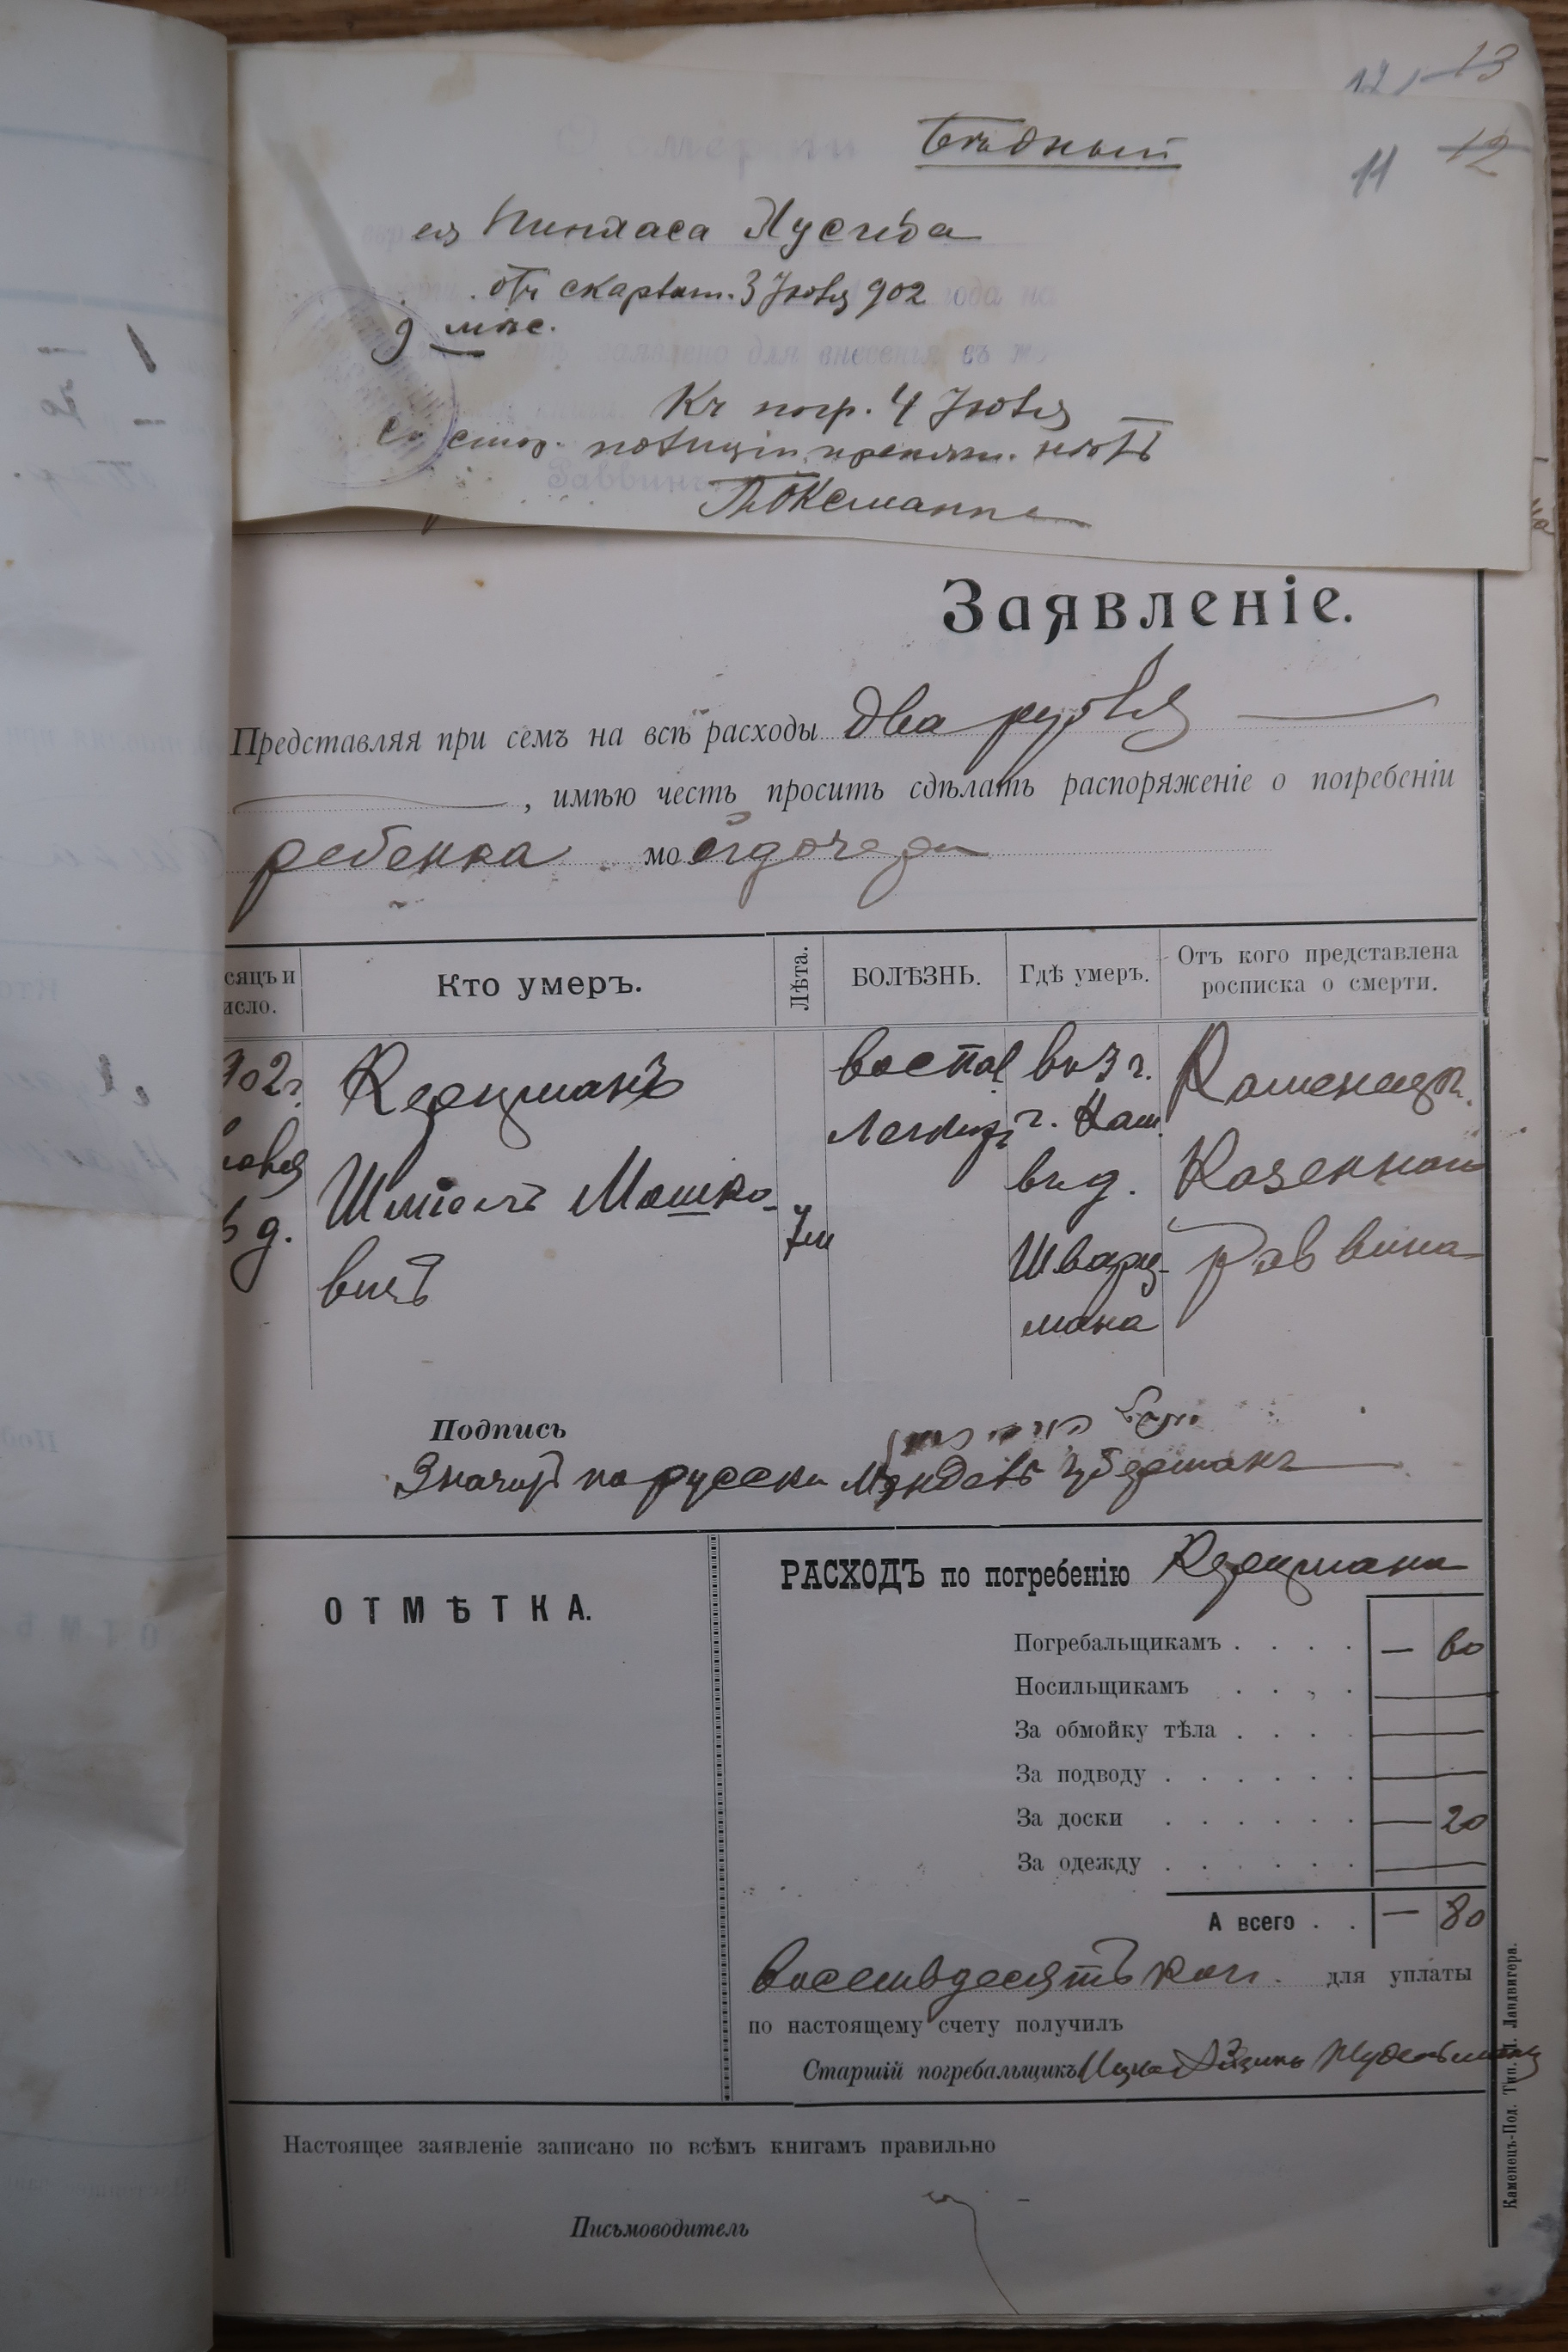 12 13
11 12
Бѣдный
Пинхаса
отъ скарлат. 3 Іюля 902
9 мѣс.
Къ погр. 4 Іюля
со стор. полиціи препят. нѣтъ
Заявленіе.
Представляя при семъ на всѣ расходы два рубля
, имѣю честь просить сдѣлать распоряженіе о погребеніи
ребенка моей дочери
сяцъ и исло.
Кто умеръ.
Лѣта.
БОЛѢЗНЬ.
Гдѣ умеръ.
Отъ кого представлена росписка о смерти.
902 г. юля 5 д.
Керцманъ Шміель Мошковичъ
7 м
воспал легкихъ
въ 3 ч. г. Кам. въ д. Шварцмана
Каменецк. Казеннаго раввина
Подпись
Значитъ по русски Мендель Губерман
ОТМѢТКА.
РАСХОДЪ по погребенію Керцмана
Погребальщикамъ . . . . — 60
Носильщикамъ . . . . —
За обмойку тѣла . . . . —
За подводу . . . . . . —
За доски . . . . . . — 20
За одежду . . . . . . —
А всего . . — 80
восемьдесятъ коп. для уплаты
по настоящему счету получилъ
Старшій погребальщикъ Ицко
Настоящее заявленіе записано по всѣмъ книгамъ правильно
Письмоводитель
Каменецъ-Под. Тип. Л. Ландвигера.